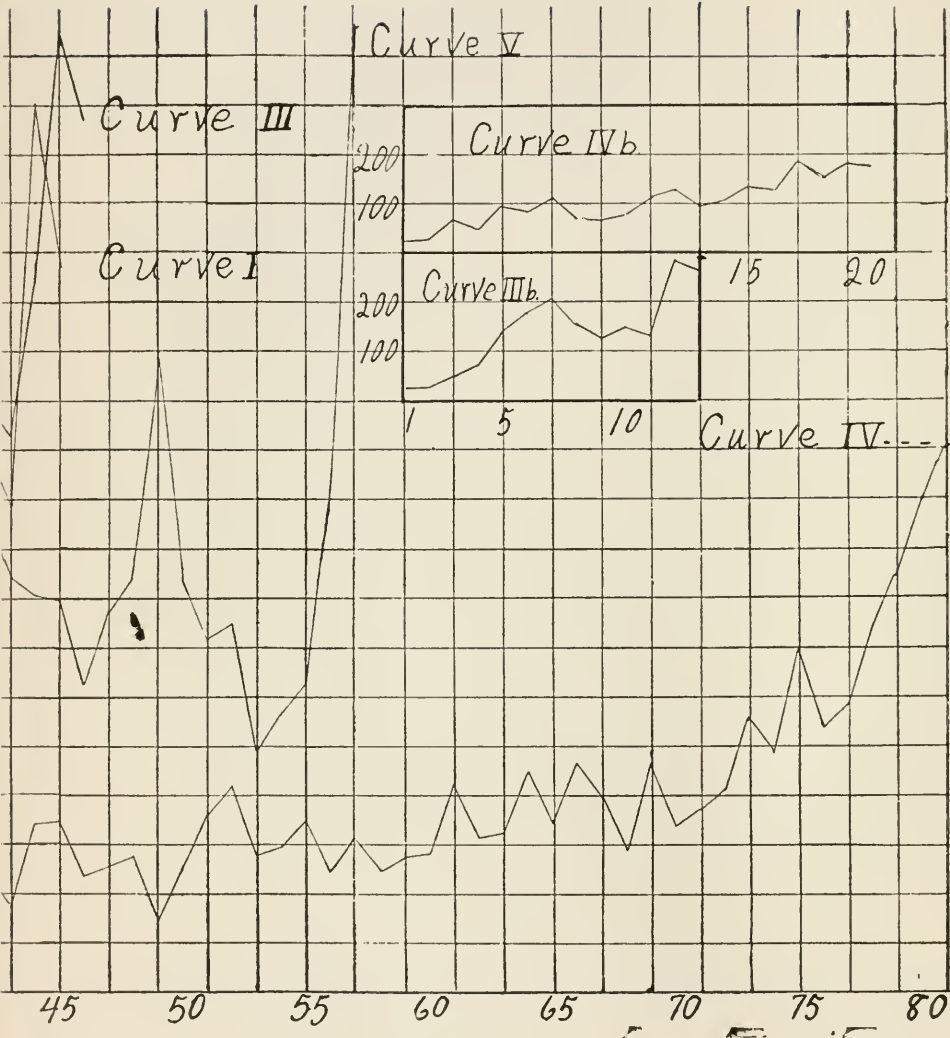 Curve V
Curve III
Curve IVb
200
100
Curve I
15 20
Curve IIIb.
200
100
1 5 10
Curve IV---
45 50 55 60 65 70 75 80